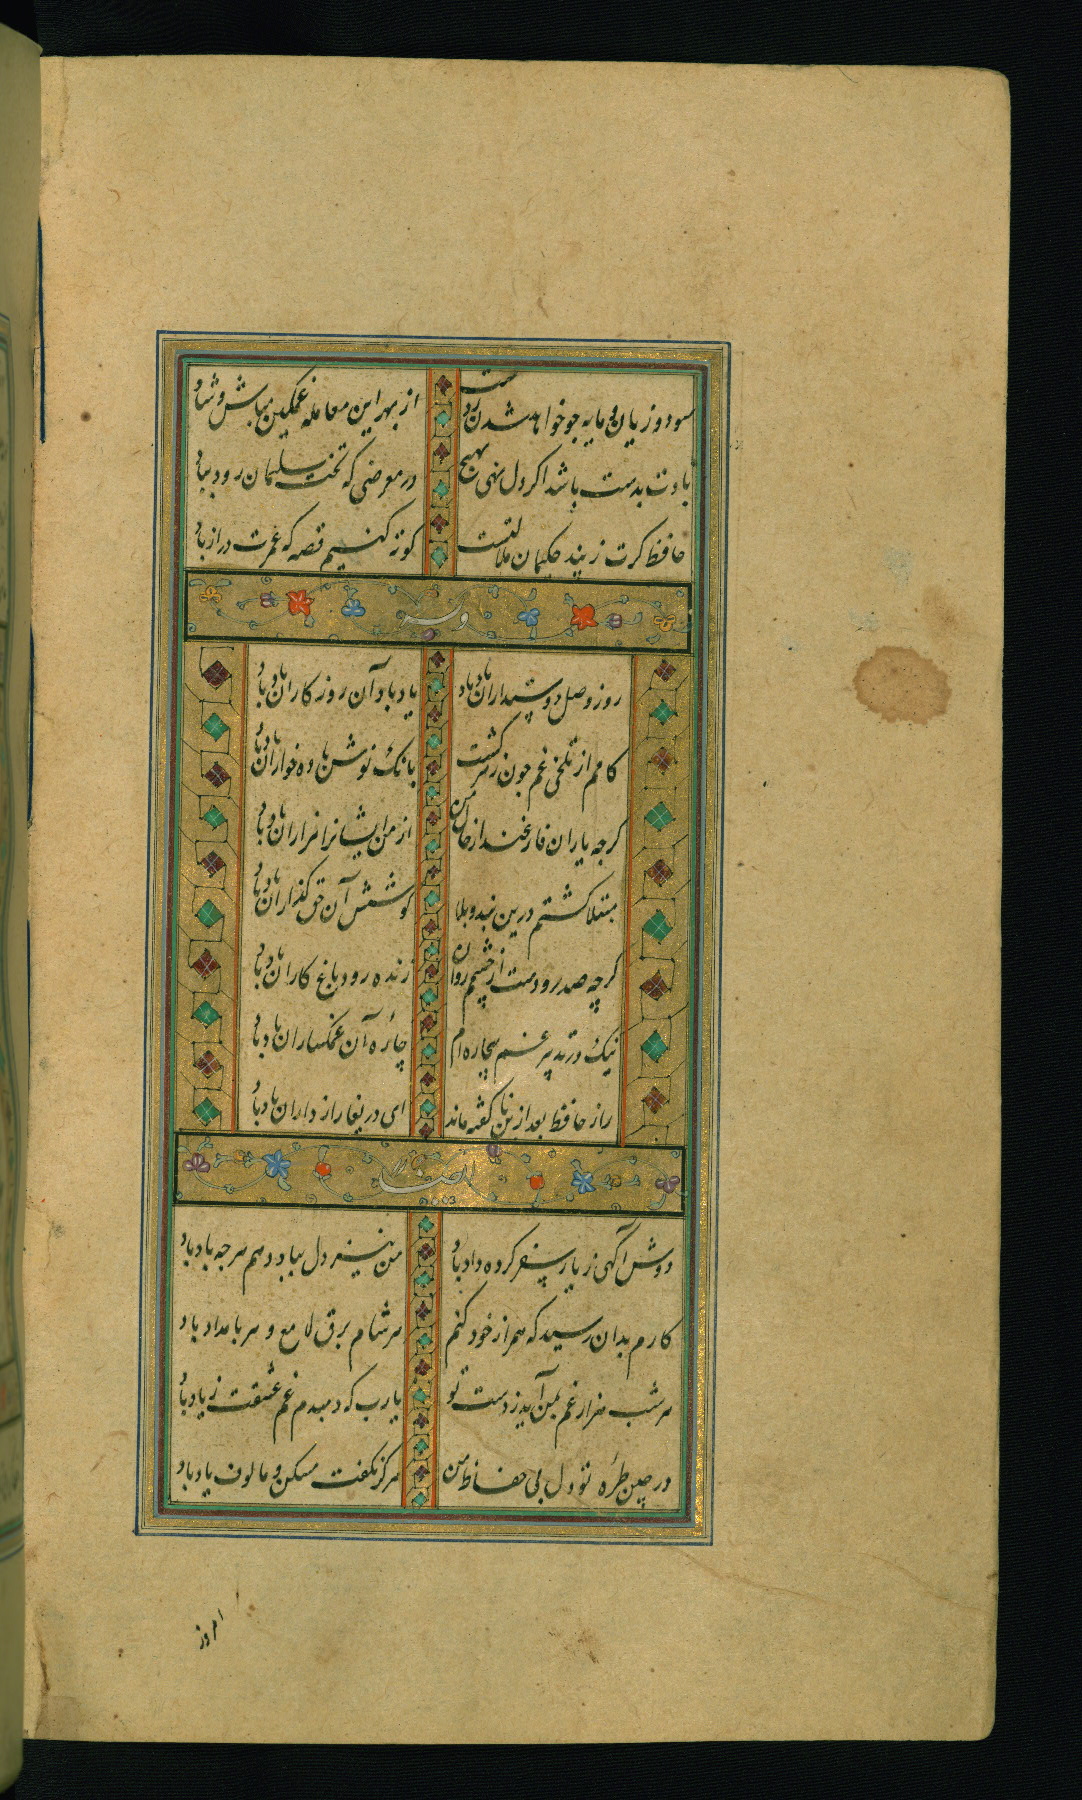 سود و زیان و مایه جو خواهد شدن ز دست از بهر این معامله غمگین مباش و شاد
بادت بدست باشد اگر دل نهی بهیچ در معرضی که تخت سلیمان رود بباد
حافظ گرت ز پند حکیمان ملالتست کوته کنیم قصه که عمرت دراز باد
وله
روز وصل دوستداران یاد باد یاد باد آن روزگاران یاد باد
کامم از تلخی غم چون زهر گشت بانگ نوش باده خواران یاد باد
گرچه یاران فارغند از حال من از من ایشانرا هزاران یاد باد
مبتلا گشتم درین بند و بلا کوشش آن حق گذاران یاد باد
گرچه صد رودست از چشمم روان زنده رود باغ کاران یاد باد
نیک در تدبیر غم بیچاره ام چاره آن غمگساران یاد باد
راز حافظ بعد ازین ناگفته ماند ای دریغا رازداران یاد باد
ایضا
دوش آگهی ز یار سفر کرده داد باد من نیز دل بباد دهم هرچه باد باد
کارم بدان رسید که همراز خود کنم هر شام برق لامع و هر بامداد باد
هر شب هزار غم بمن آید ز دست تو یارب که دمبدم غم عشقت زیاد باد
در چین طره تو دل بی حفاظ من هرگز نگفت مسکن مالوف یاد باد
امروز